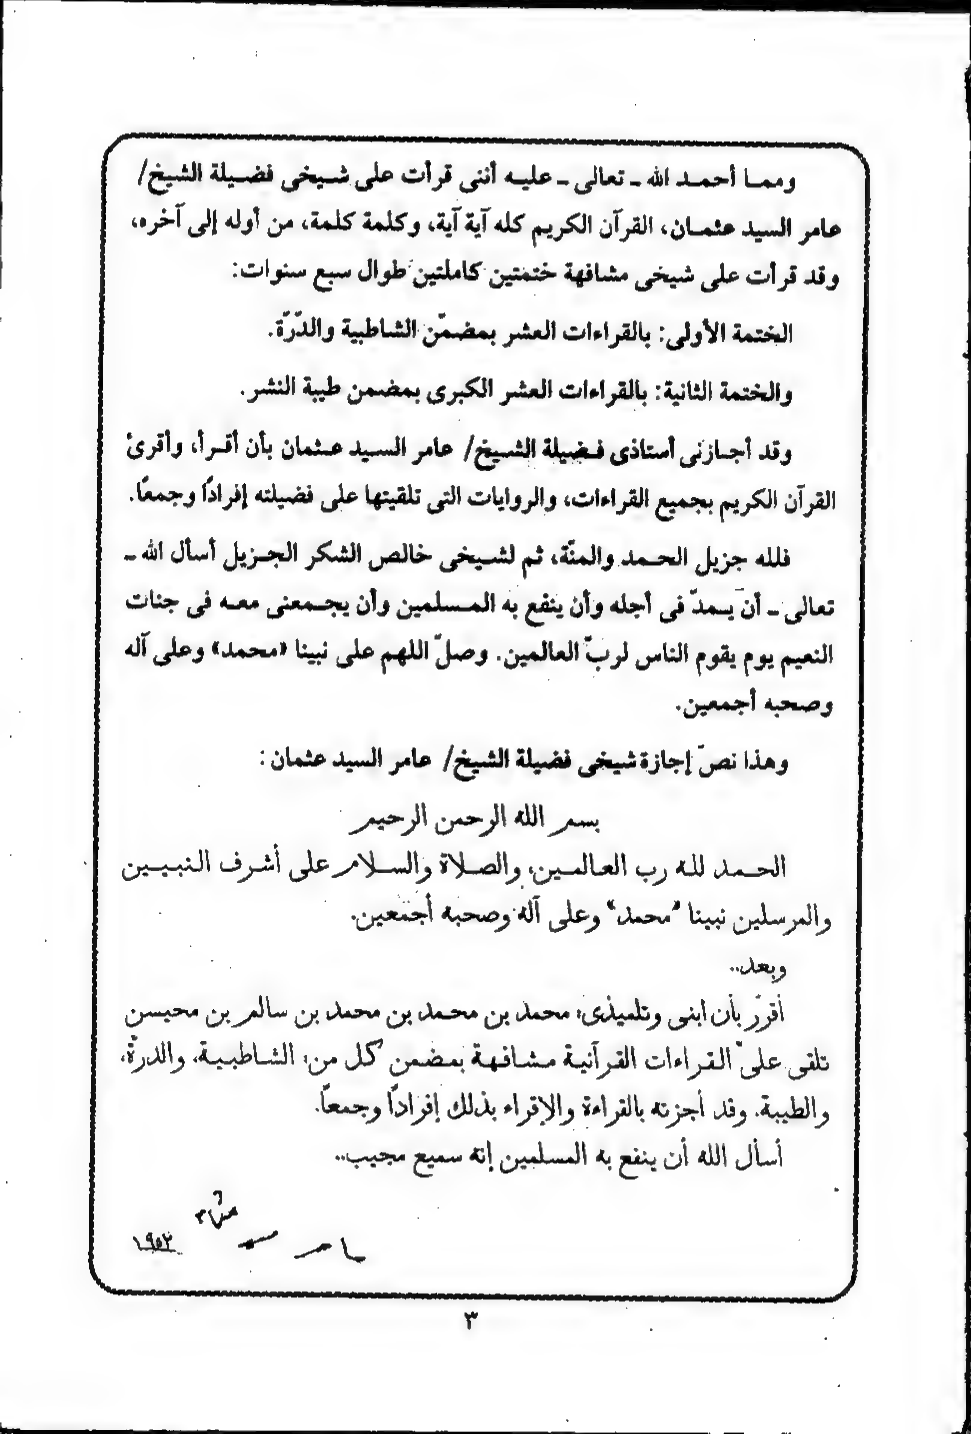 ومما أحمد الله ـ تعالى ـ عليه أننى قرأت على شيخى فضيلة الشيخ/
عامر السيد عثمان، القرآن الكريم كله آية آية، وكلمة كلمة، من أوله إلى آخره،
وقد قرأت على شيخى مشافهة ختمتين كاملتين طوال سبع سنوات:
الختمة الأولى: بالقراءات العشر بمضمّن الشاطبية والدّرّة.
والختمة الثانية: بالقراءات العشر الكبرى بمضمن طيبة النشر.
وقد أجازنى أستاذى فضيلة الشيخ/ عامر السيد عثمان بأن أقرأ، وأقرئ
القرآن الكريم بجميع القراءات، والروايات التى تلقيتها على فضيلته إفرادًا وجمعًا.
فلله جزيل الحمد والمنّة، ثم لشيخى خالص الشكر الجزيل أسأل الله ـ
تعالى ـ أن يمدّ فى أجله وأن ينفع به المسلمين وأن يجمعنى معه فى جنات
النعيم يوم يقوم الناس لربّ العالمين. وصلّ اللهم على نبينا «محمد» وعلى آله
وصحبه أجمعين.
وهذا نصّ إجازة شيخى فضيلة الشيخ/ عامر السيد عثمان:
بسم الله الرحمن الرحيم
الحمد لله رب العالمين، والصلاة والسلام على أشرف النبيين
والمرسلين نبينا "محمد" وعلى آله وصحبه أجمعين.
وبعد..
أقرّر بأن ابنى وتلميذى: محمد بن محمد بن محمد بن سالم بن محيسن
تلقى علىّ القراءات القرآنية مشافهة بمضمن كل من: الشاطبية، والدرّة،
والطيبة. وقد أجزته بالقراءة والإقراء بذلك إفراداً وجمعاً.
أسأل الله أن ينفع به المسلمين إنه سميع مجيب..
عامر السيد عثمان
١٩٥٣
٣